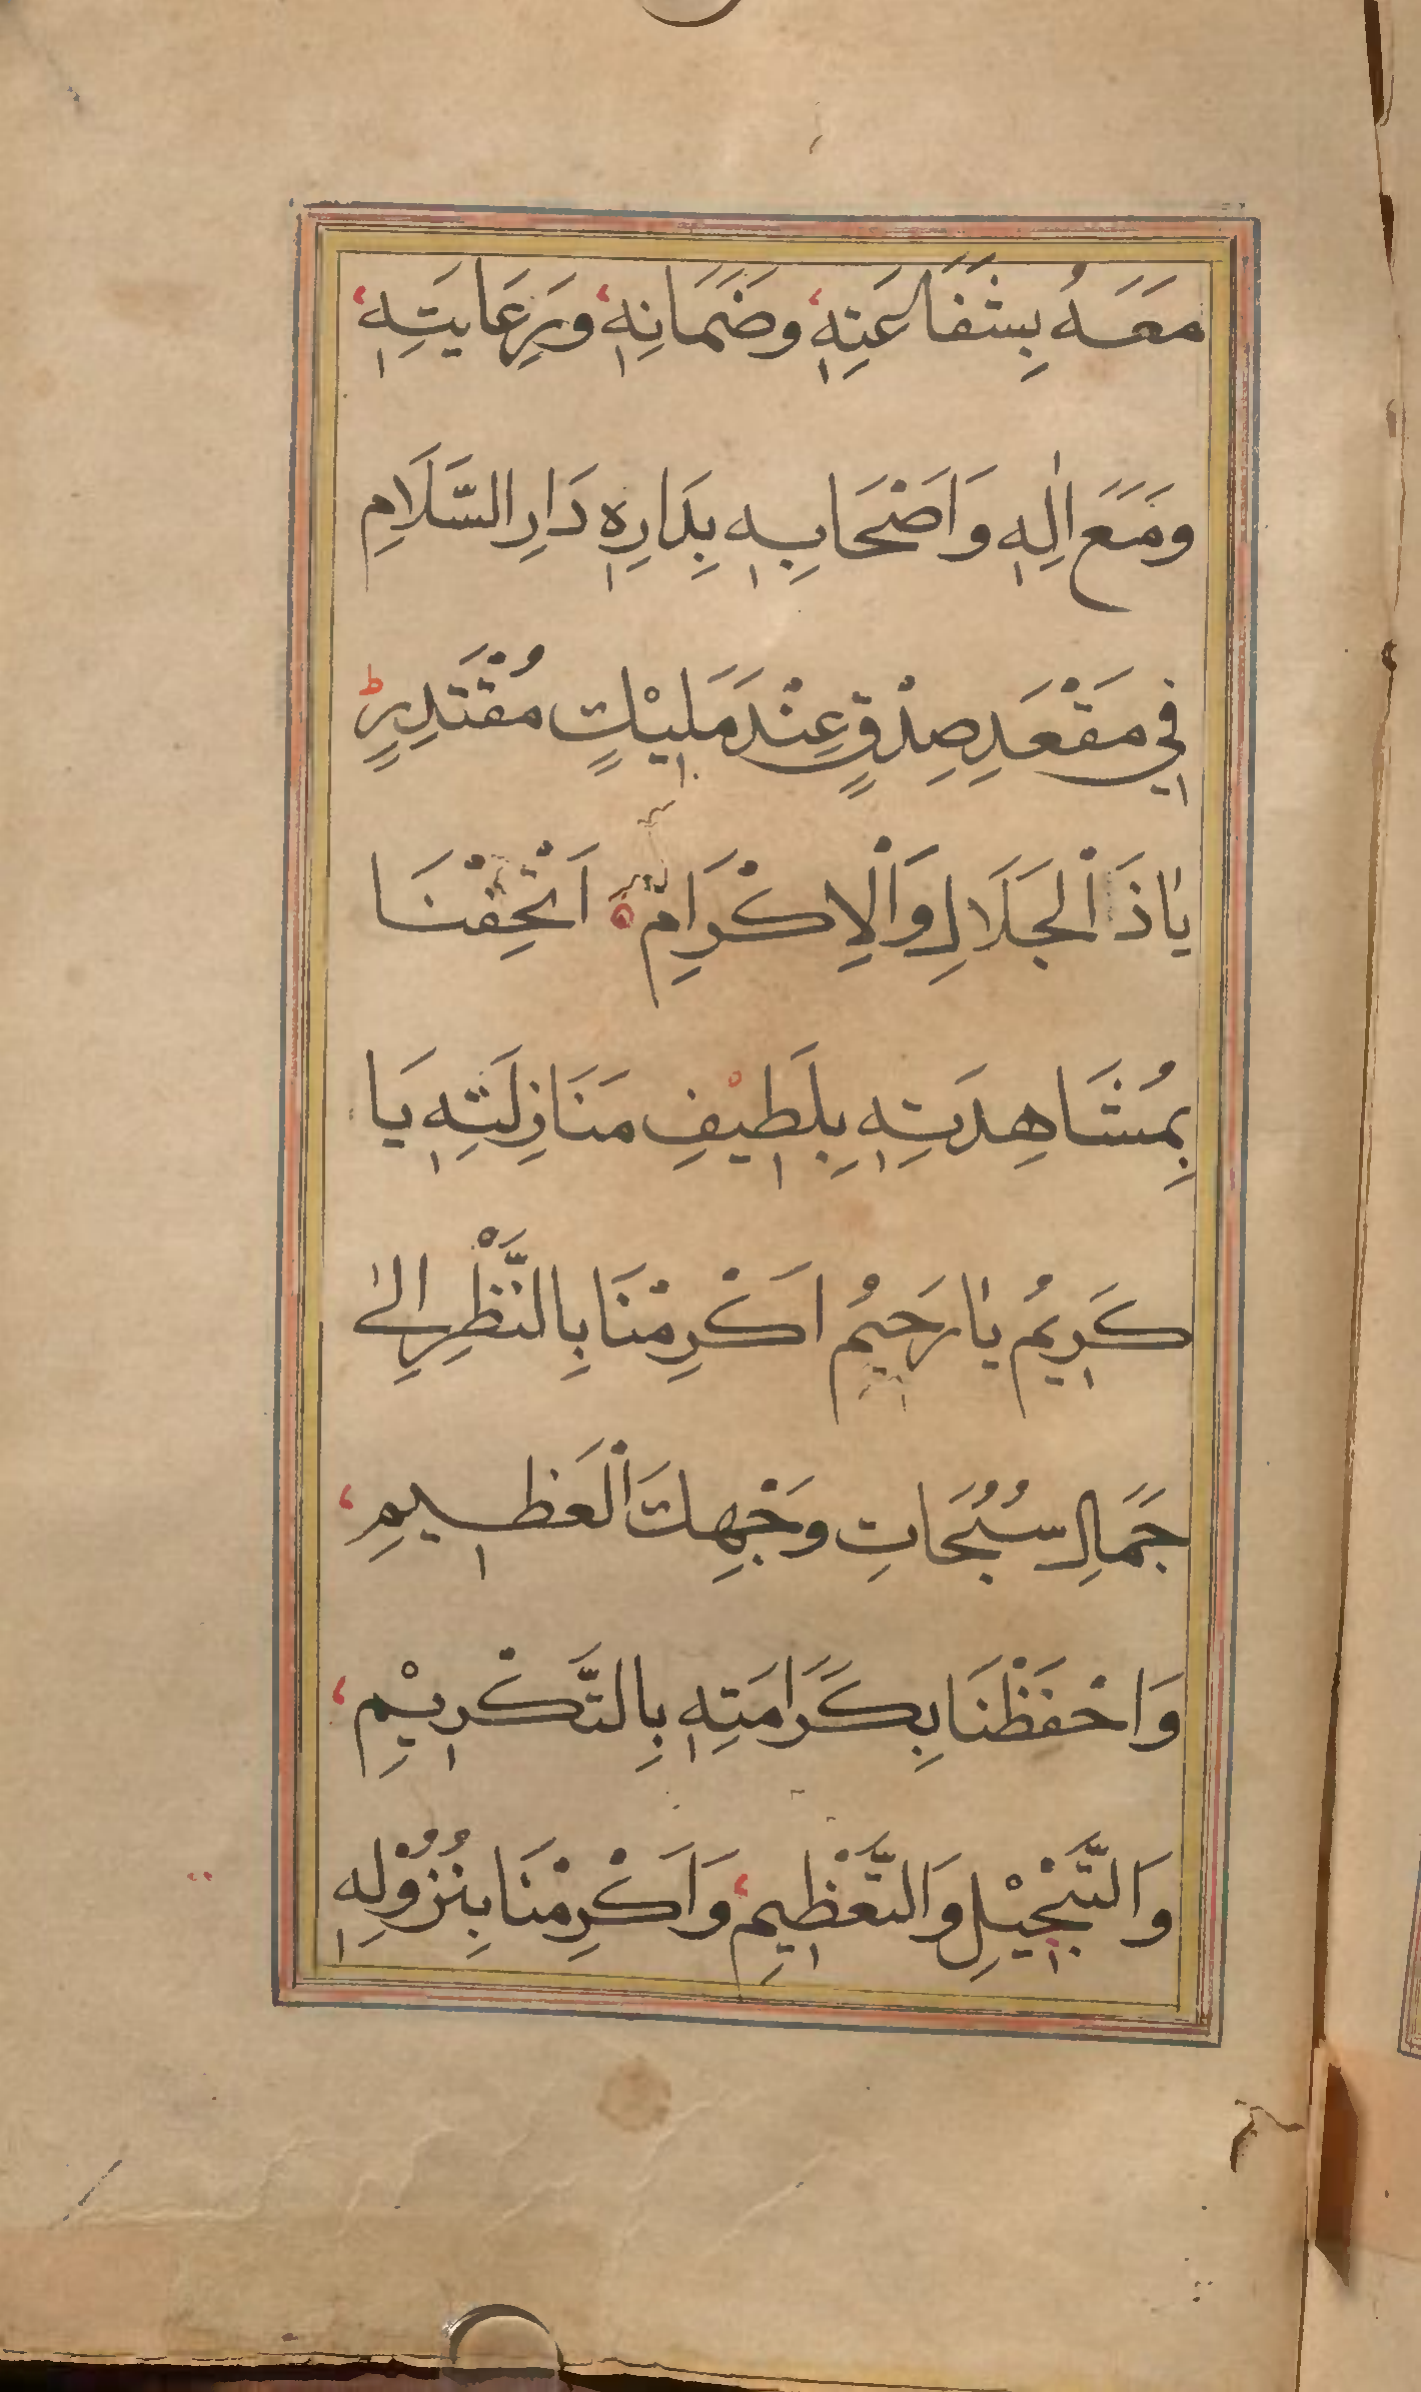 مَعَهُ بِشَفَاعَتِهٖ وَضَمَانِهٖ وَرِعَايَتِهٖ
وَمَعَ اٰلِهٖ وَاَصْحَابِهٖ بِدَارِهٖ دَارِ السَّلَامِ
فِي مَقْعَدِ صِدْقٍ عِنْدَ مَلِيْكٍ مُقْتَدِرٍ
يٰاذَ الْجَلَالِ وَالْاِكْرَامِ اَتْحِفْنَا
بِمُشَاهِدَتِهٖ بِلَطِيْفِ مَنَازِلَتِهٖ يَا
كَرِيمُ يٰارَحِيمُ اَكْرِمْنَا بِالنَّظْرِ اِلىٰ
جَمَالِ سُبُحَاتِ وَجْهِكَ الْعَظِيمِ
وَاحْفَظْنَا بِكَرَامَتِهٖ بِالتَّكْرِيْمِ
وَالتَّبْجِيْلِ وَالتَّعْظِيمِ وَاَكْرِمْنَا بِنُزُوْلِهٖ